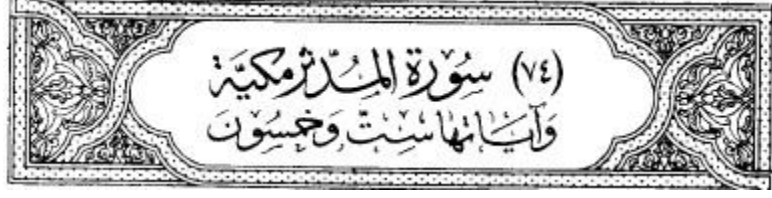 (٧٤) سُوْرَةِ المُدَّثِّرْ مَكِيَّة
وَآيَاتهَا سِتٌ وَخَمْسُونَ